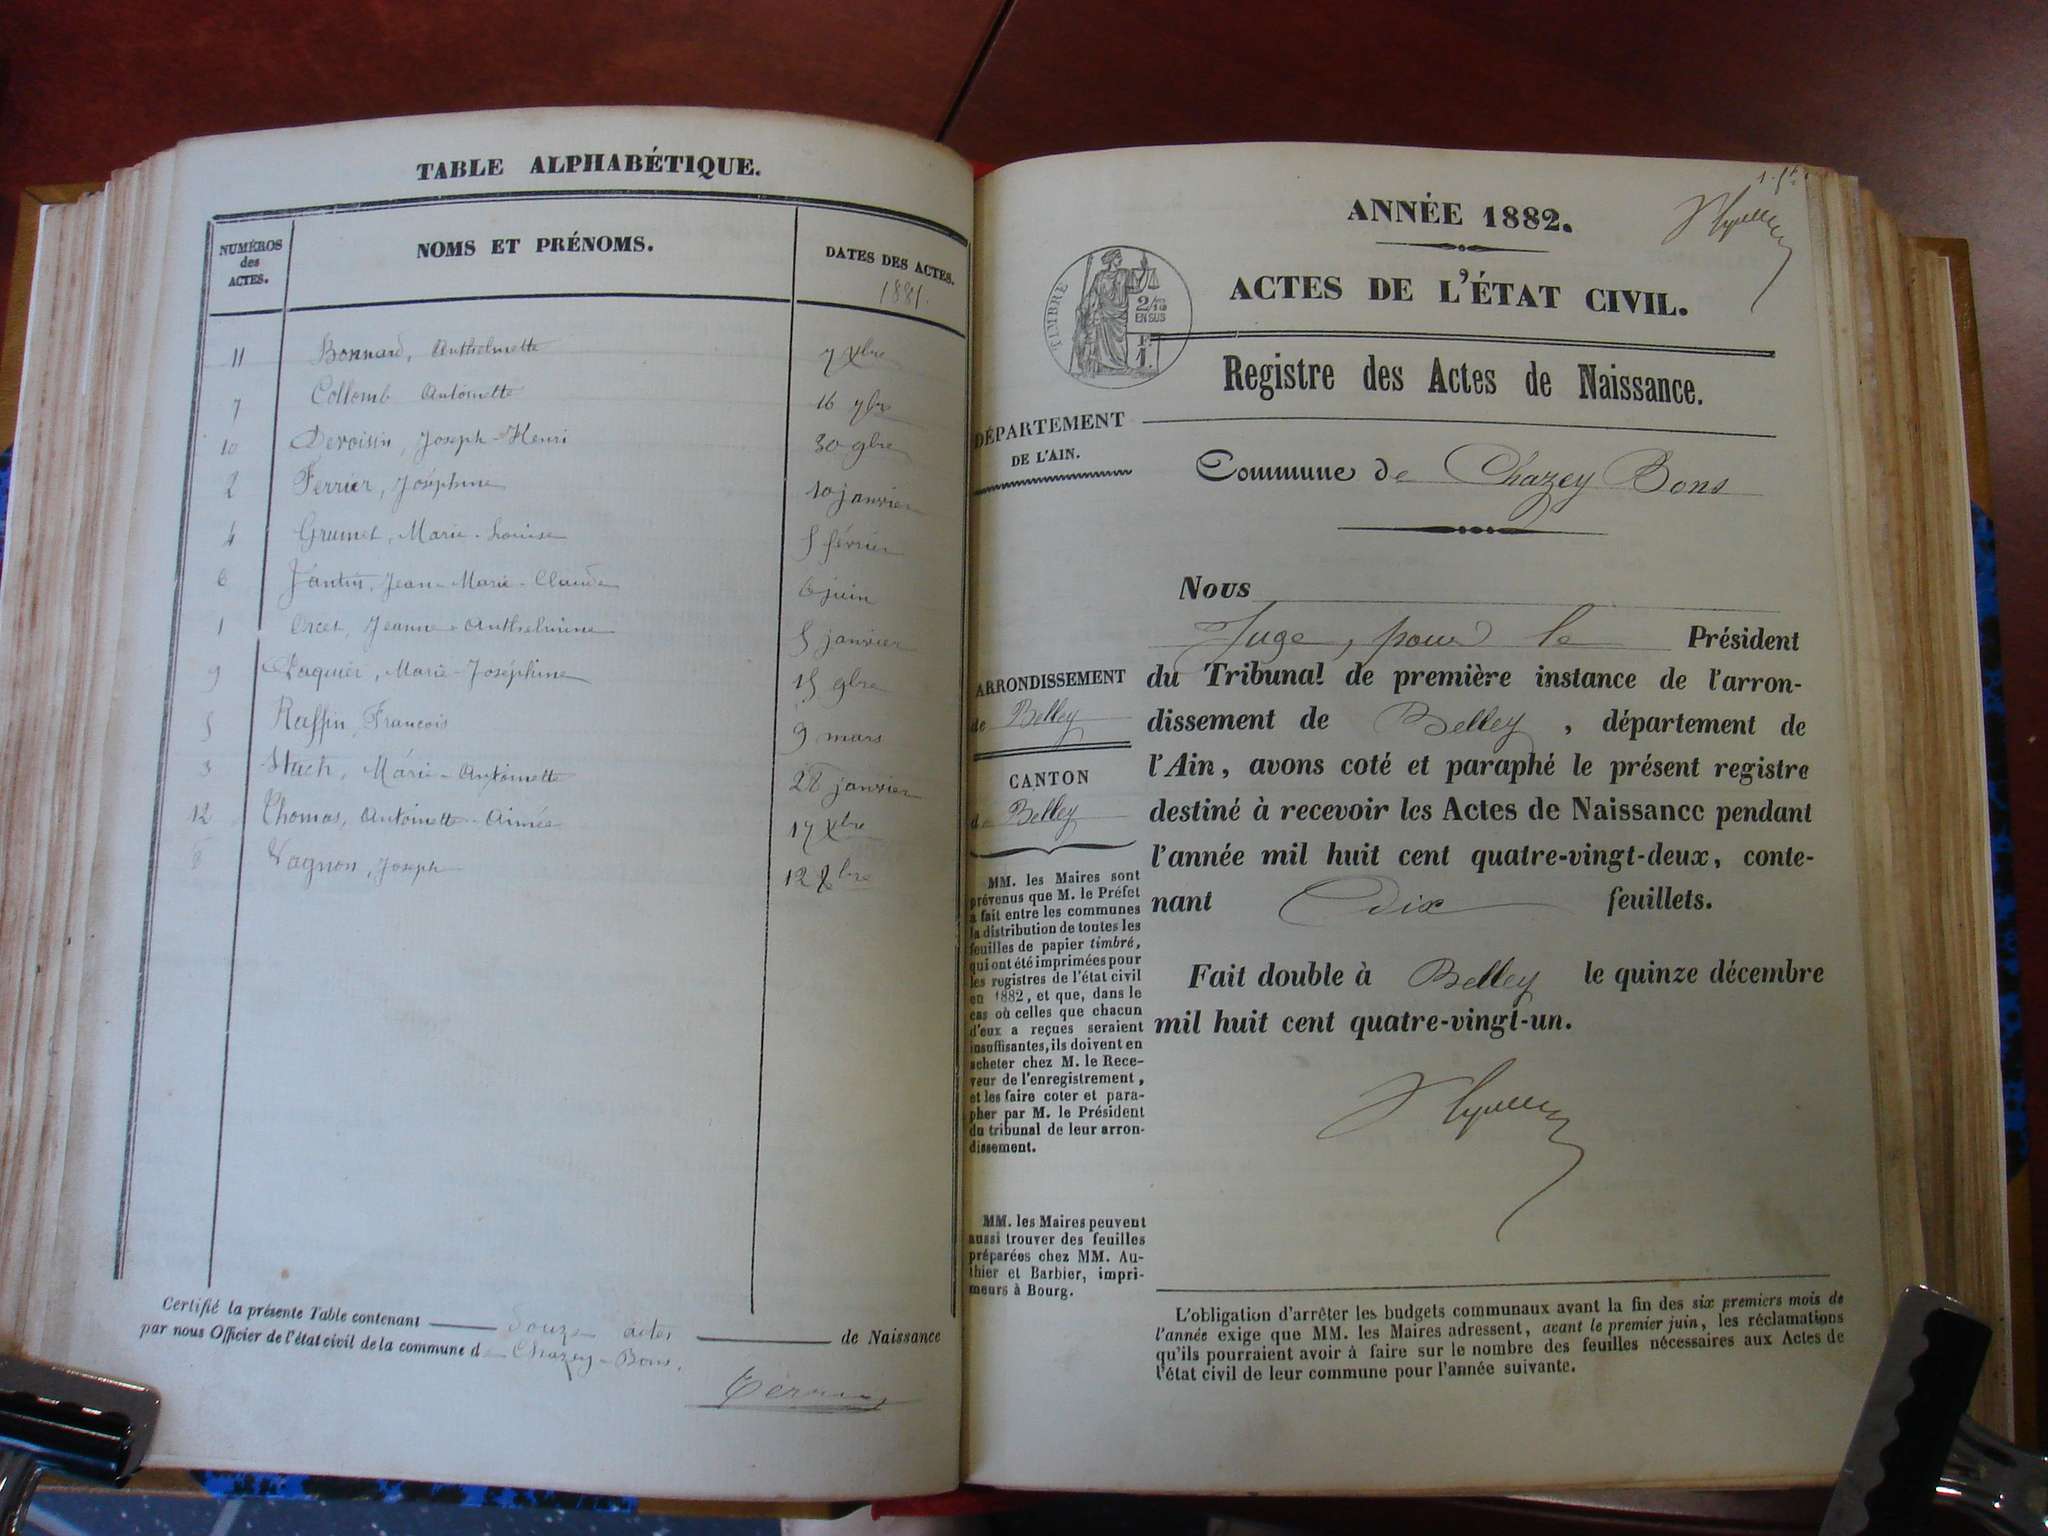 TABLE ALPHABÉTIQUE.
NUMÉROS des ACTES.
NOMS ET PRÉNOMS.
DATES DES ACTES.
1881.
11 Bonnard, Anthelmette 7 Xbre
7 Collomb Antoinette 16 7bre
10 Devoisin, Joseph-Henri 30 9bre
2 Ferrier, Joséphine 10 janvier
4 Grumet, Marie-Louise 5 février
6 Jantin, Jean-Marie-Claude 6 juin
1 Orcet, Jeanne-Anthelmine 5 janvier
9 Paquier, Marie-Joséphine 15 9bre
5 Raffin, François 9 mars
3 Marie-Antoinette 28 janvier
12 Thomas, Antoinette-Aimée 17 Xbre
8 Vagnon, Joseph 12 8bre
Certifié la présente Table contenant douze actes de Naissance
par nous Officier de l'état civil de la commune de Chazey-Bons.
ANNÉE 1882.
ACTES DE L'ÉTAT CIVIL.
TIMBRE
2/10
EN SUS
F.
1.
Registre des Actes de Naissance.
DÉPARTEMENT
DE L'AIN.
Commune de Chazey Bons
Nous
Juge, pour le Président
du Tribunal de première instance de l'arron-
dissement de Belley, département de
l'Ain, avons coté et paraphé le présent registre
destiné à recevoir les Actes de Naissance pendant
l'année mil huit cent quatre-vingt-deux, conte-
nant Dix feuillets.
Fait double à Belley le quinze décembre
mil huit cent quatre-vingt-un.
ARRONDISSEMENT
de Belley
CANTON
de Belley
MM. les Maires sont
prévenus que M. le Préfet
a fait entre les communes
la distribution de toutes les
feuilles de papier timbré,
qui ont été imprimées pour
les registres de l'état civil
en 1882, et que, dans le
cas où celles que chacun
d'eux a reçues seraient
insuffisantes, ils doivent en
acheter chez M. le Rece-
veur de l'enregistrement,
et les faire coter et para-
pher par M. le Président
du tribunal de leur arron-
dissement.
MM. les Maires peuvent
aussi trouver des feuilles
préparées chez MM. Au-
thier et Barbier, impri-
meurs à Bourg.
L'obligation d'arrêter les budgets communaux avant la fin des six premiers mois de
l'année exige que MM. les Maires adressent, avant le premier juin, les réclamations
qu'ils pourraient avoir à faire sur le nombre des feuilles nécessaires aux Actes de
l'état civil de leur commune pour l'année suivante.